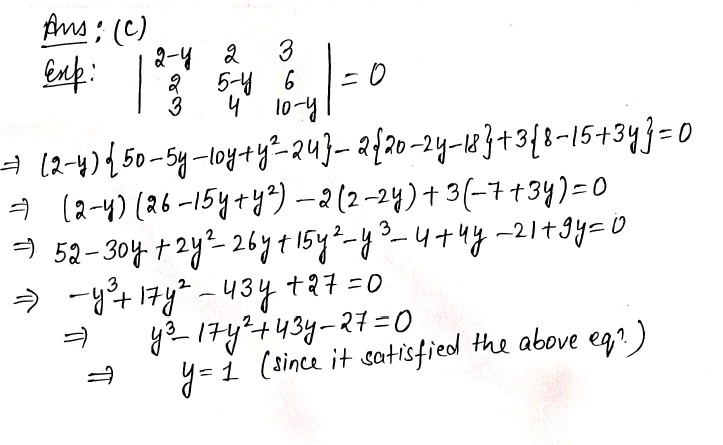 Ans : (C)
Exp: | 2-y 2 3 |
| 2 5-y 6 | = 0
| 3 4 10-y |
⇒ (2-y) {50-5y-10y+y²-24} - 2{20-2y-18} + 3{8-15+3y} = 0
⇒ (2-y) (26-15y+y²) - 2(2-2y) + 3(-7+3y) = 0
⇒ 52-30y+2y²-26y+15y²-y³-4+4y-21+9y = 0
⇒ -y³+17y²-43y+27 = 0
⇒ y³-17y²+43y-27 = 0
⇒ y = 1 (since it satisfied the above eqⁿ.)